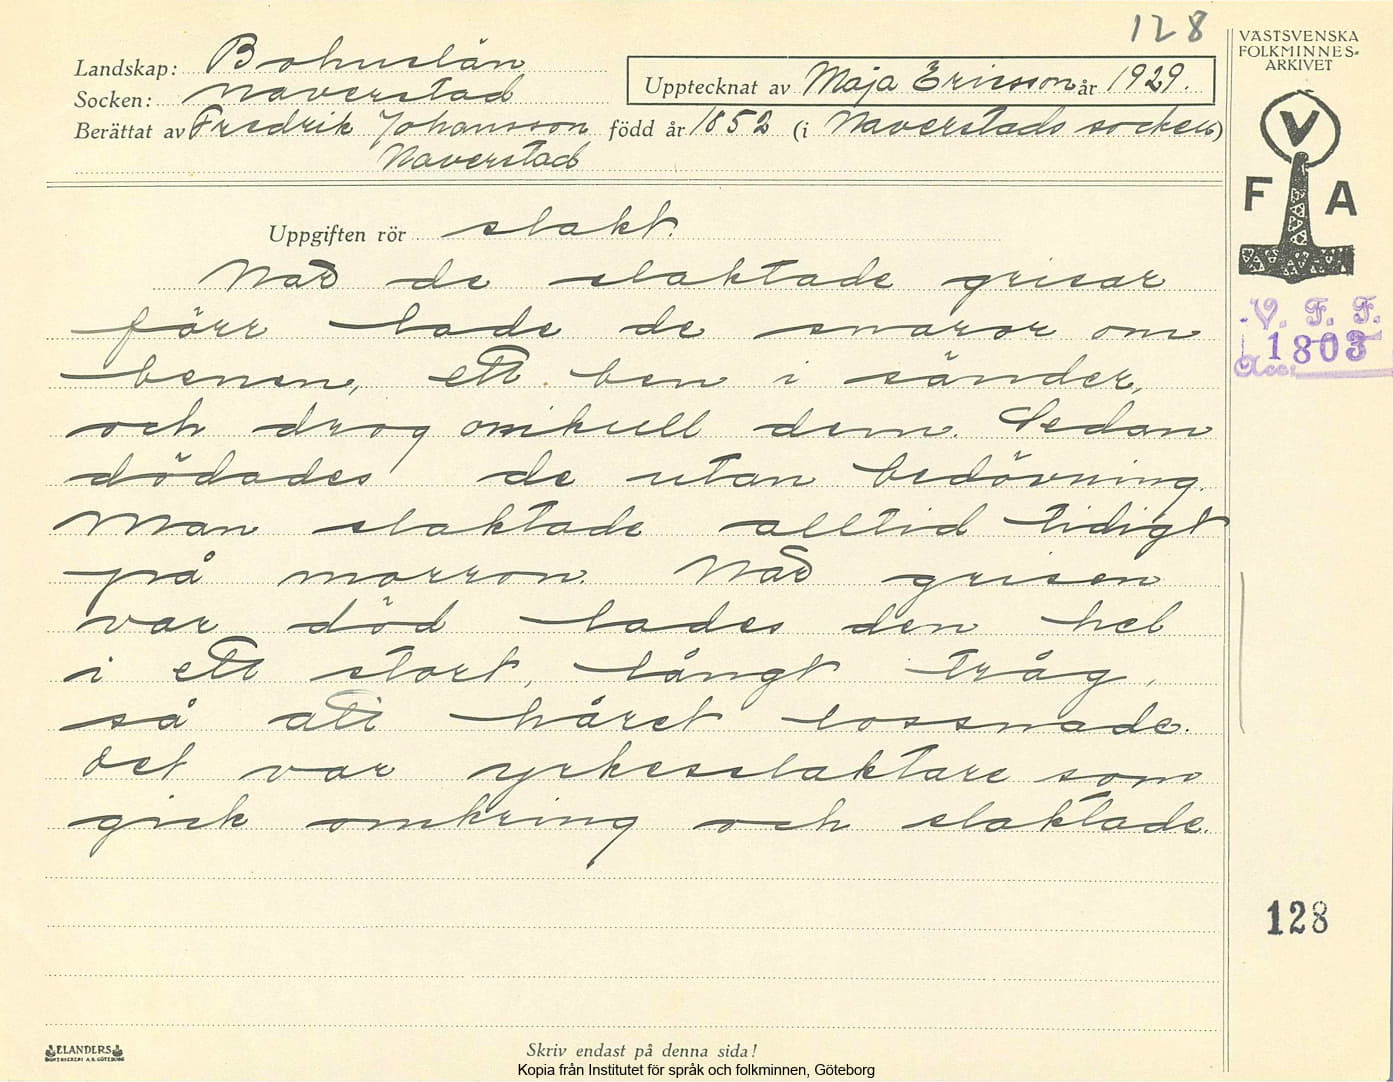 128
VÄSTSVENSKA
FOLKMINNES-
ARKIVET
Landskap: Bohuslän
Socken: Naverstad
Upptecknat av Maja Ericsson år 1929.
Berättat av Fredrik Johansson född år 1852 (i Naverstads socken)
Naverstad
V
F A
Uppgiften rör slakt.
När de slaktade grisar
förr lade de snaror om
benen, ett ben i sänder,
och drog omkull dem. Sedan
dödades de utan bedövning.
Man slaktade alltid tidigt
på morron. När grisen
var död lades den hel
i ett stort, långt tråg,
så att håret lossnade.
Det var yrkesslaktare som
gick omkring och slaktade.
V. F. F.
1803
Acc.
128
ELANDERS
BOKTRYCKERI A.B. GÖTEBORG
Skriv endast på denna sida!
Kopia från Institutet för språk och folkminnen, Göteborg